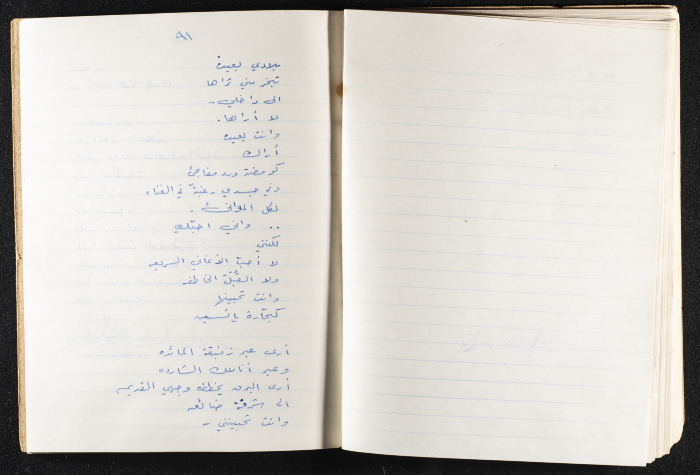 ٩١
بلادي بعيده
تبخر مني ثراها
الى داخلي..
لا أراها.
وانت بعيده
أراك
كومضة ورد مفاجئ
وفي جسدي رغبة في الغناء
لكل الموانئ.
.. واني احبك
لكنني
لا أحب الاغاني السريعه
ولا القُبَل الخاطفه
وانت تحبينها
كبحّارة يائسين
أرى عبر زنبقة المائده
وعبر أناملك الشارده
أرى البرق يخطف وجهي القديم
الى شرفة ضائعه
وانت تحبينني -